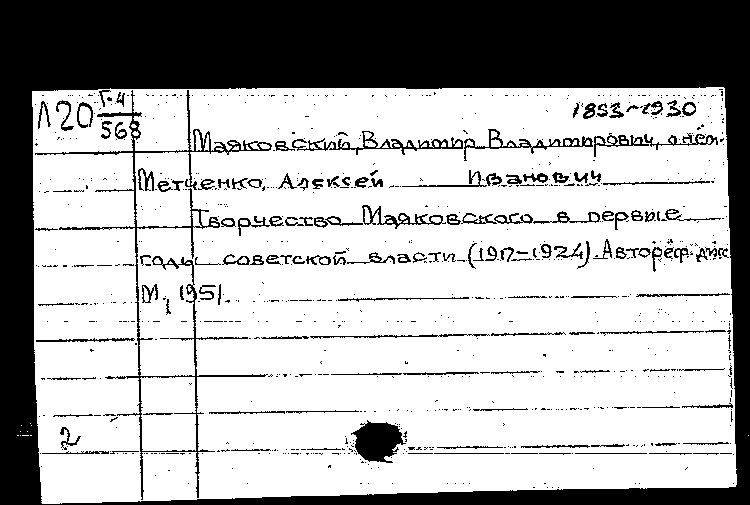 Л20 Г-4/568
1893-1930
Маяковский, Владимир Владимирович, о нём.
Метченко, Алексей Иванович
Творчество Маяковского в первые
годы советской власти (1917-1924). Автореф. дисс
М., 1951.
2